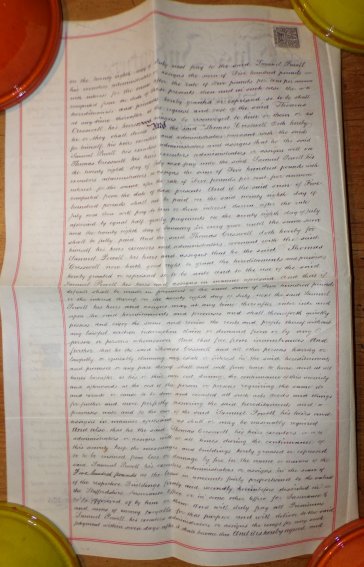 on the twenty eighth day of July next pay to the said Samuel Powell
his executors administrators or assigns the sum of Five hundred pounds
with interest for the same after the rate of Five pounds per cent per annum
computed from the date of these presents then and in such case the
hereditaments and premises hereby granted or expressed so to be shall
at any time thereafter the request and cost of the said Thomas
Cresswell his heirs or assigns be reconveyed to him or them or as
he or they shall direct And the said Thomas Cresswell doth hereby
for himself his heirs executors and administrators covenant with the said
Samuel Powell his executors administrators and assigns that he the said
Thomas Cresswell his heirs executors administrators or assigns will on
the twenty eighth day of July next pay unto the said Samuel Powell his
executors administrators or assigns the sum of Five hundred pounds with
interest for the same after the rate of Five pounds per cent per annum
computed from the date of these presents And if the said sum of Five
hundred pounds shall not be paid on the said twenty eighth day of
July next then will pay to him or them interest thereon after the rate
aforesaid by equal half yearly payments on the twenty eighth day of July
and the twenty eighth day of January in every year until the same sum
shall be fully paid And the said Thomas Cresswell doth hereby for
himself his heirs executors and administrators covenant with the said
Samuel Powell his heirs and assigns that he the said Thomas
Cresswell now hath power to grant the hereditaments and premises
hereby granted or expressed so to be unto and to the use of the said
Samuel Powell his heirs and assigns in manner aforesaid And that if
default shall be made in payment of the said sum of Five hundred pounds
or the interest thereon on the twenty eighth day of July next the said Samuel
Powell his heirs and assigns may at any time thereafter enter into and
upon the said hereditaments and premises and shall thenceforth quietly
possess and enjoy the same and receive the rents and profits thereof without
any lawful eviction interruption claim or demand from or by any
person or persons whomsoever And that free from incumbrances And
further that he the said Thomas Cresswell and all other persons having or
lawfully or equitably claiming any estate or interest in the said hereditaments
and premises or any part thereof shall and will from time to time and at all
times hereafter at his or their own cost during the continuance of this security
and afterwards at the cost of the person or persons requiring the same do
and execute or cause to be done and executed all such acts deeds and things
for further and more perfectly assuring the said hereditaments and
premises unto and to the use of the said Samuel Powell his heirs and
assigns in manner aforesaid as shall or may be reasonably required
And also that he the said Thomas Cresswell his heirs executors or
administrators or assigns will at all times during the continuance of
this security keep the messuages and buildings hereby granted or expressed
so to be insured from loss or damage by fire in the name or names of the
said Samuel Powell his executors administrators or assigns in the sum of
Five hundred pounds at the least in amounts fairly proportioned to the values
of the respective Buildings firstly and secondly hereinbefore described in
the Staffordshire Insurance Office or in some other office for Insurance to
be approved of by him or them And will duly pay all Premiums
and sums of money payable for that purpose and will deliver to the said
Samuel Powell his executors administrators or assigns the receipt for every such
payment within seven days after it shall become due And it is hereby agreed and